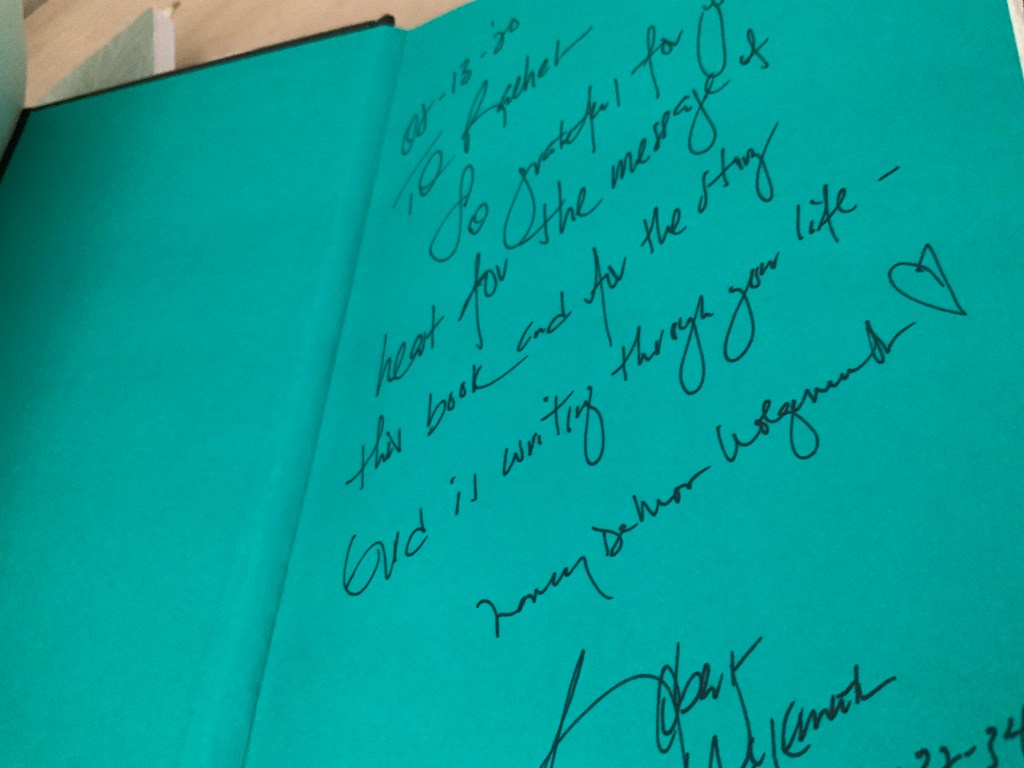 -13-'20
To Rachel
So grateful for
heart for the message of
this book and for the story
God is writing through your life -
Nancy DeMoss Wolgemuth ♡
Robert
Wolgemuth
22-34